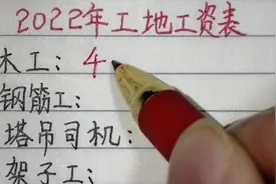 2022年工地工资表
木工：4
钢筋工：
塔吊司机：
架子工：